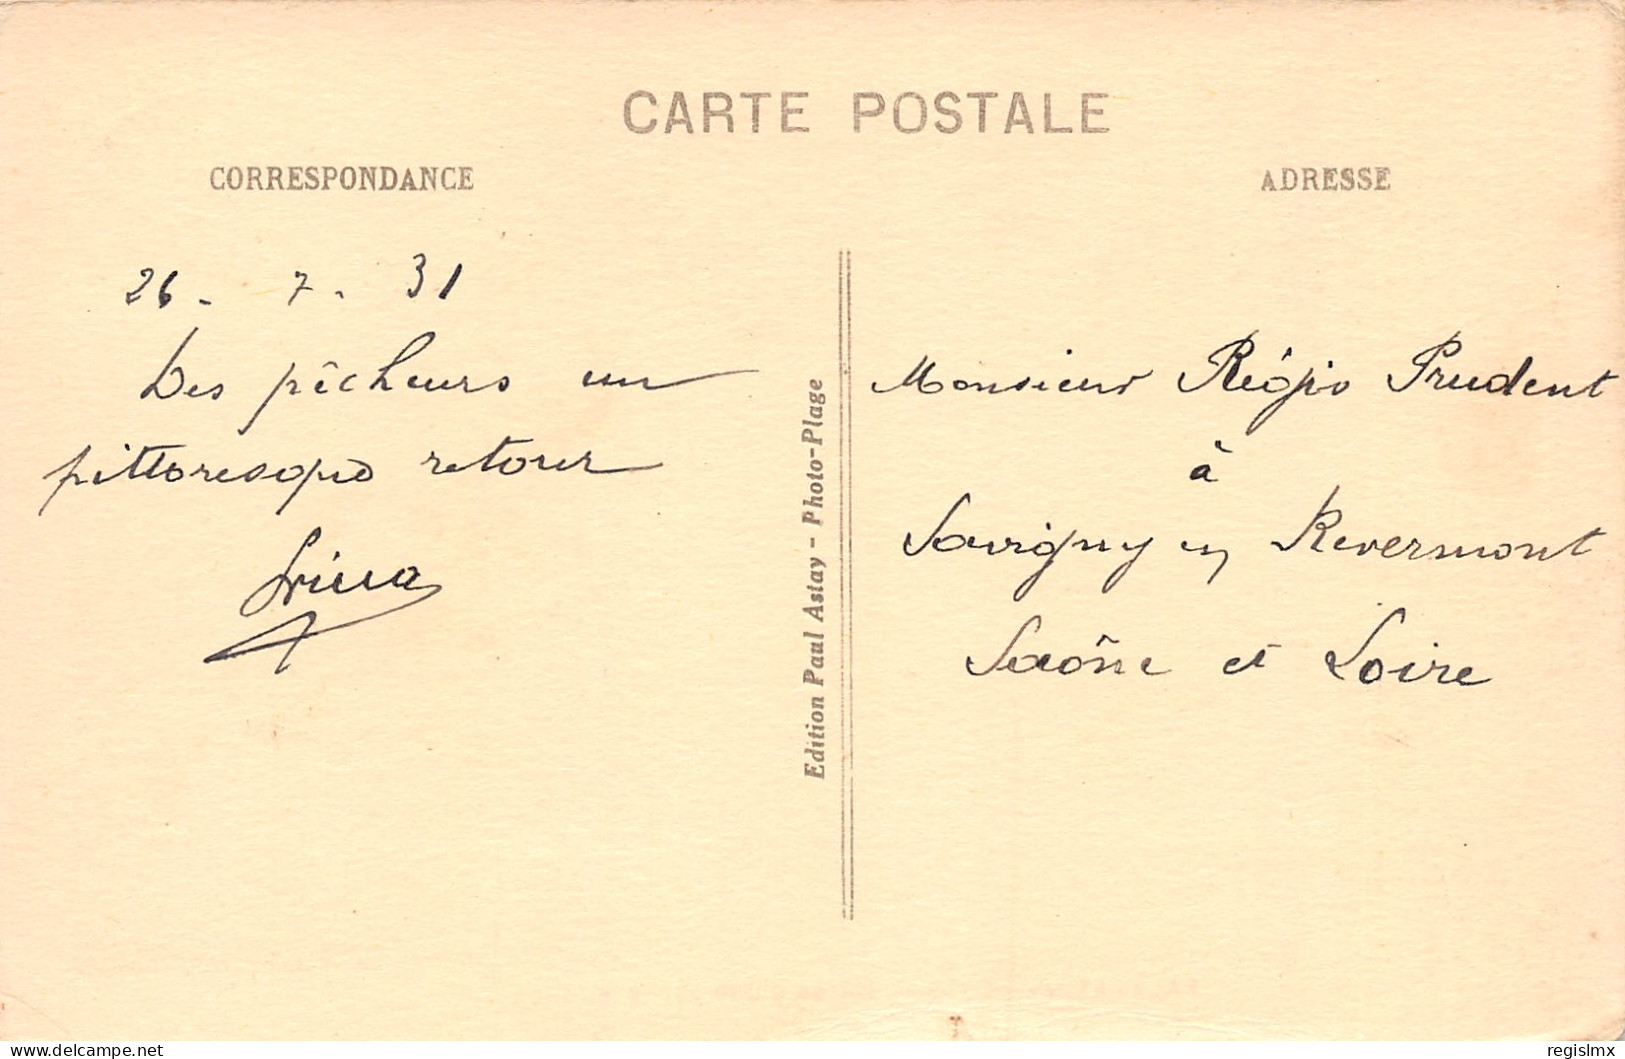 CARTE POSTALE
CORRESPONDANCE
ADRESSE
26 - 7 - 31
Des pêcheurs un
pittoresque retour
Edition Paul Astay - Photo-Plage
Monsieur Régis Prudent
à
Savigny en Revermont
Saône et Loire
delcampe.net
regislmx